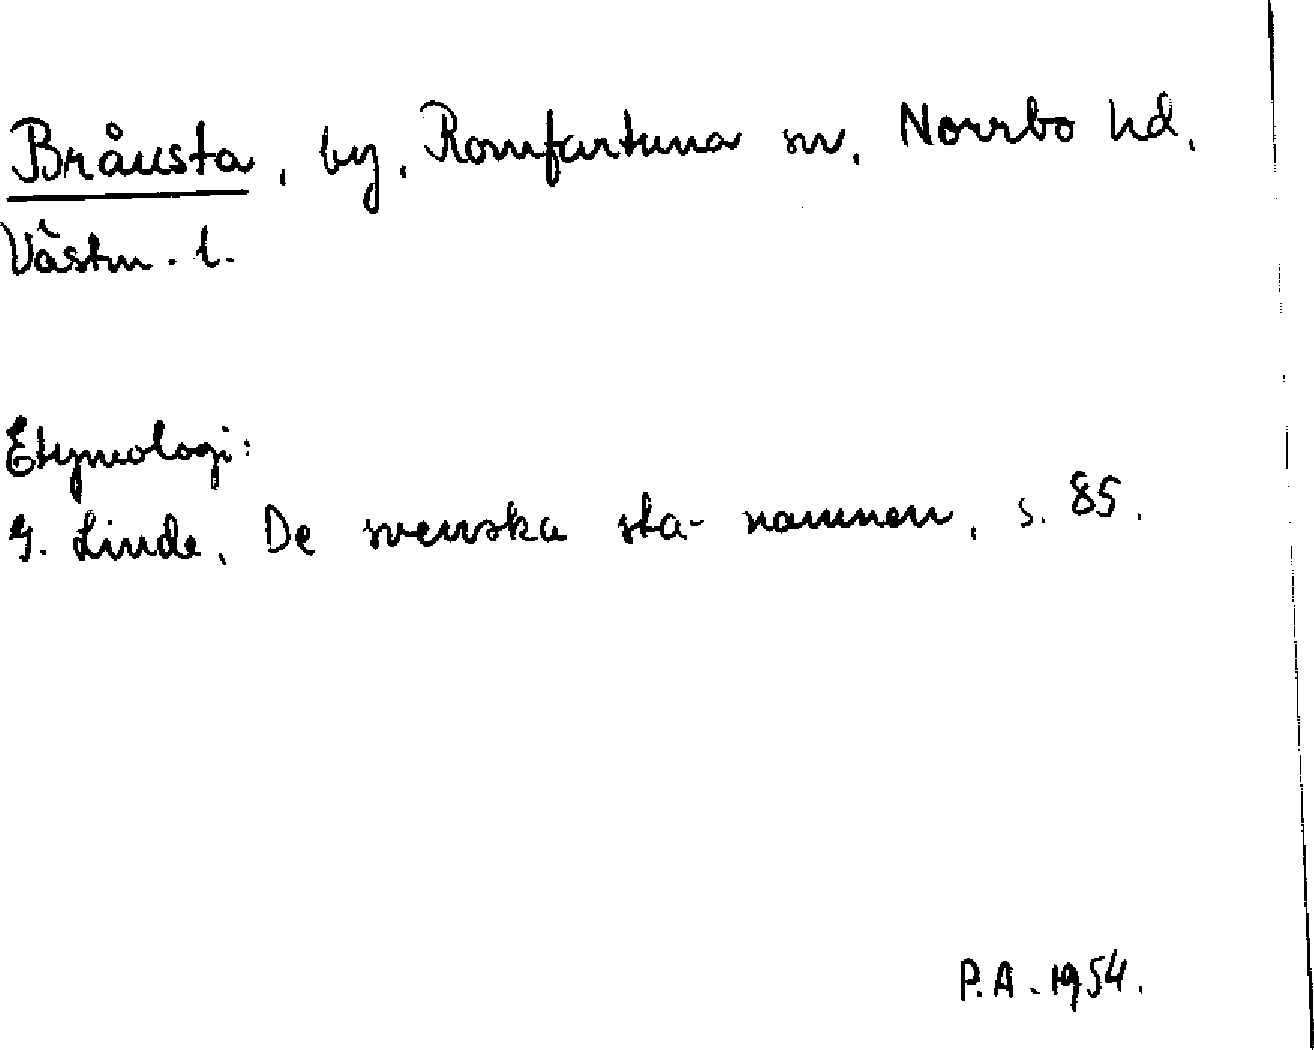 Bråusta, by, Romfartuna sn, Norrbo hd,
Västm. l.
Etymologi:
G. Linde, De svenska sta-namnen, s. 85.
P.A. 1954.